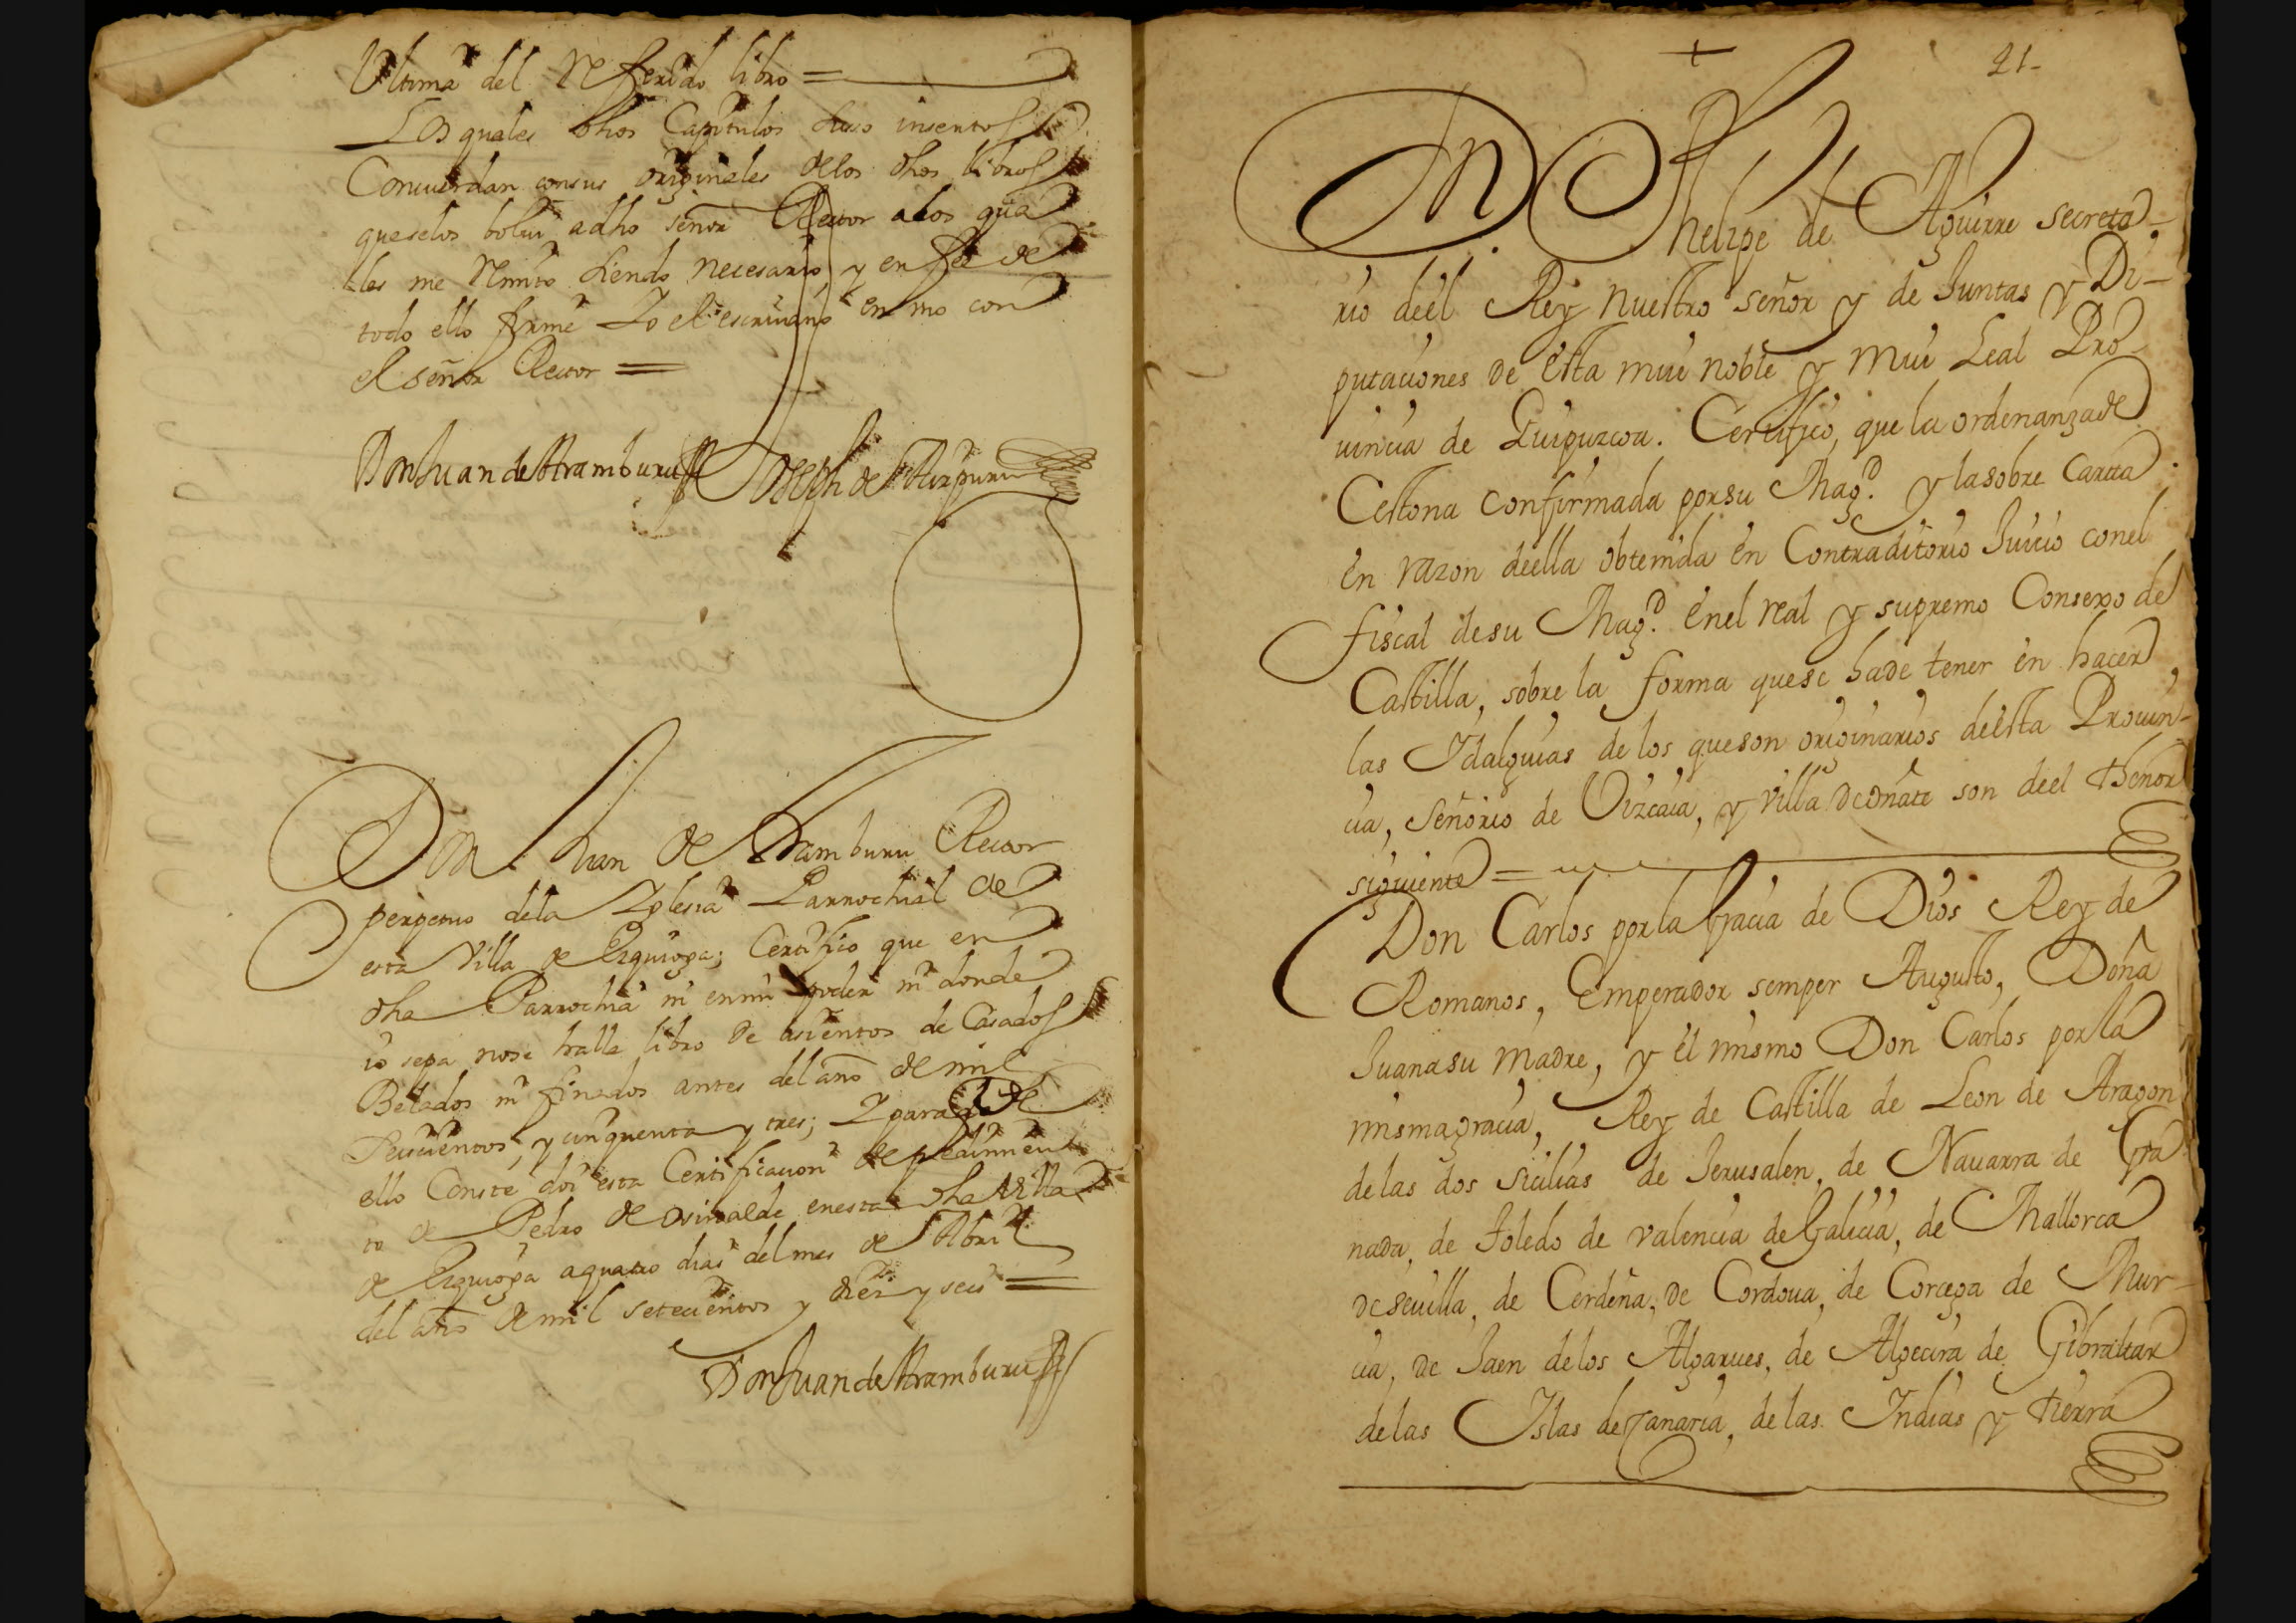 Vltima del Referido libro =
Los quales dhos Capitulos suso insertos
Concuerdan con sus originales de los dhos libros
que selos bolui a dho señor Rector a los qua
les me Remito siendo necesario, y en fee de
todo ello firmé Yo el escriuano en vno con
el señor Rector =
Don Juan de Aramburu Joseph de Aizpuru
Don Juan de Aramburu Rector
perpetuo dela Yglesia Parrochial de
esta Villa de Ezquioga; Certifico que en
dha Parrochia ni en mi poder ni donde
io sepa nose halla libro de asientos de Casados
Belados ni finados antes del año de mil
Seiscientos, y cinquenta y tres; Y para q de
ello Conste doi esta Certificacion de pedimien
to de Pedro de en esta dha Villa
de Ezquioga a quatro dias del mes de Abril
del año de mil setecientos y diez y seis =
Don Juan de Aramburu
+
21-
Phelipe de Aguirre secreta-
rio deel Rey nuestro señor y de Juntas y Di-
putaciones de esta mui noble y mui Leal Pro
uincia de Guipuzcoa. Certifico, que la ordenanza de
Cestona confirmada por su Magd. y la sobre Carta
en razon deella obtenida en Contraditorio Juicio con el
fiscal de su Magd. en el real y supremo Consexo de
Castilla, sobre la forma que se ha de tener en hacer
las Idalguias de los que son originarios deesta Prouin-
cia, Señorio de Vizcaia, y villa de oñate son deel thenor
siguiente =
Don Carlos por la Gracia de Dios Rey de
Romanos, Emperador semper Augusto, Doña
Juana su madre, y el mismo Don Carlos por la
misma gracia, Rey de Castilla de Leon de Aragon
de las dos Sicilias de Jerusalen, de Nauarra de Gra
nada, de Toledo de valencia de Galicia, de Mallorca
de seuilla, de Cerdeña, de Cordoua, de Corcega de Mur-
cia, de Jaen de los Algarues, de Algecira de Gibraltar
de las Islas de Canaria, de las Indias y tierra